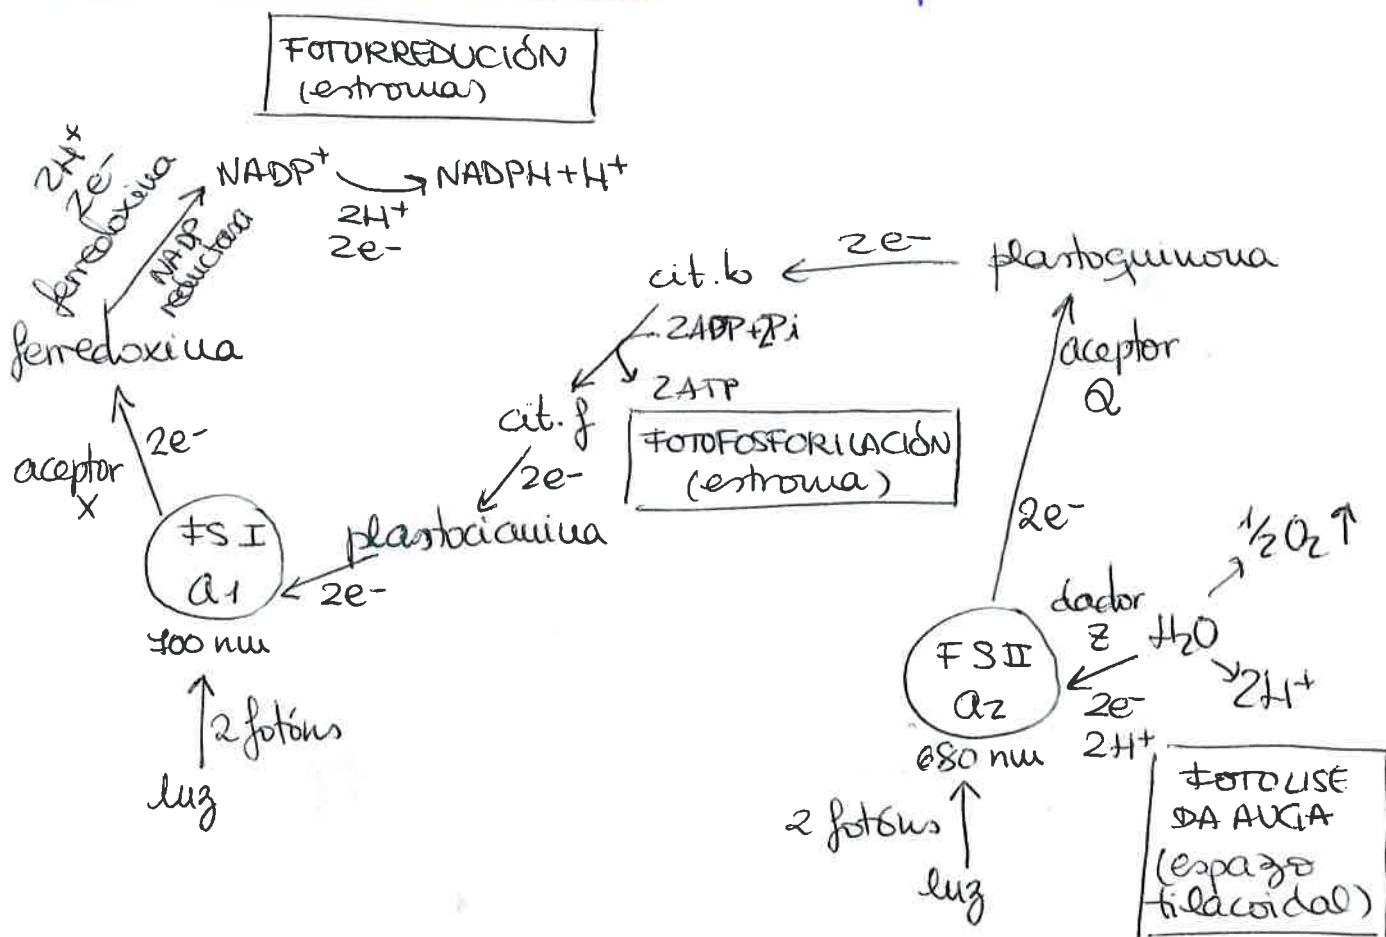 FOTORREDUCIÓN
(estromas)
2H⁺
2e⁻
ferredoxina
NADP
reductasa
NADP⁺
NADPH + H⁺
2H⁺
2e⁻
ferredoxina
aceptor
X
2e⁻
FS I
a1
700 nm
2 fotóns
luz
plastoquinona
2e⁻
cit. b
2ADP+2Pi
2ATP
cit. f
FOTOFOSFORILACIÓN
(estroma)
2e⁻
plastocianina
2e⁻
aceptor
Q
2e⁻
FS II
a2
680 nm
2 fotóns
luz
dador
Z
H₂O
½O₂ ↑
2H⁺
2e⁻
2H⁺
FOTOLISE
DA AUGA
(espazo
tilacoidal)